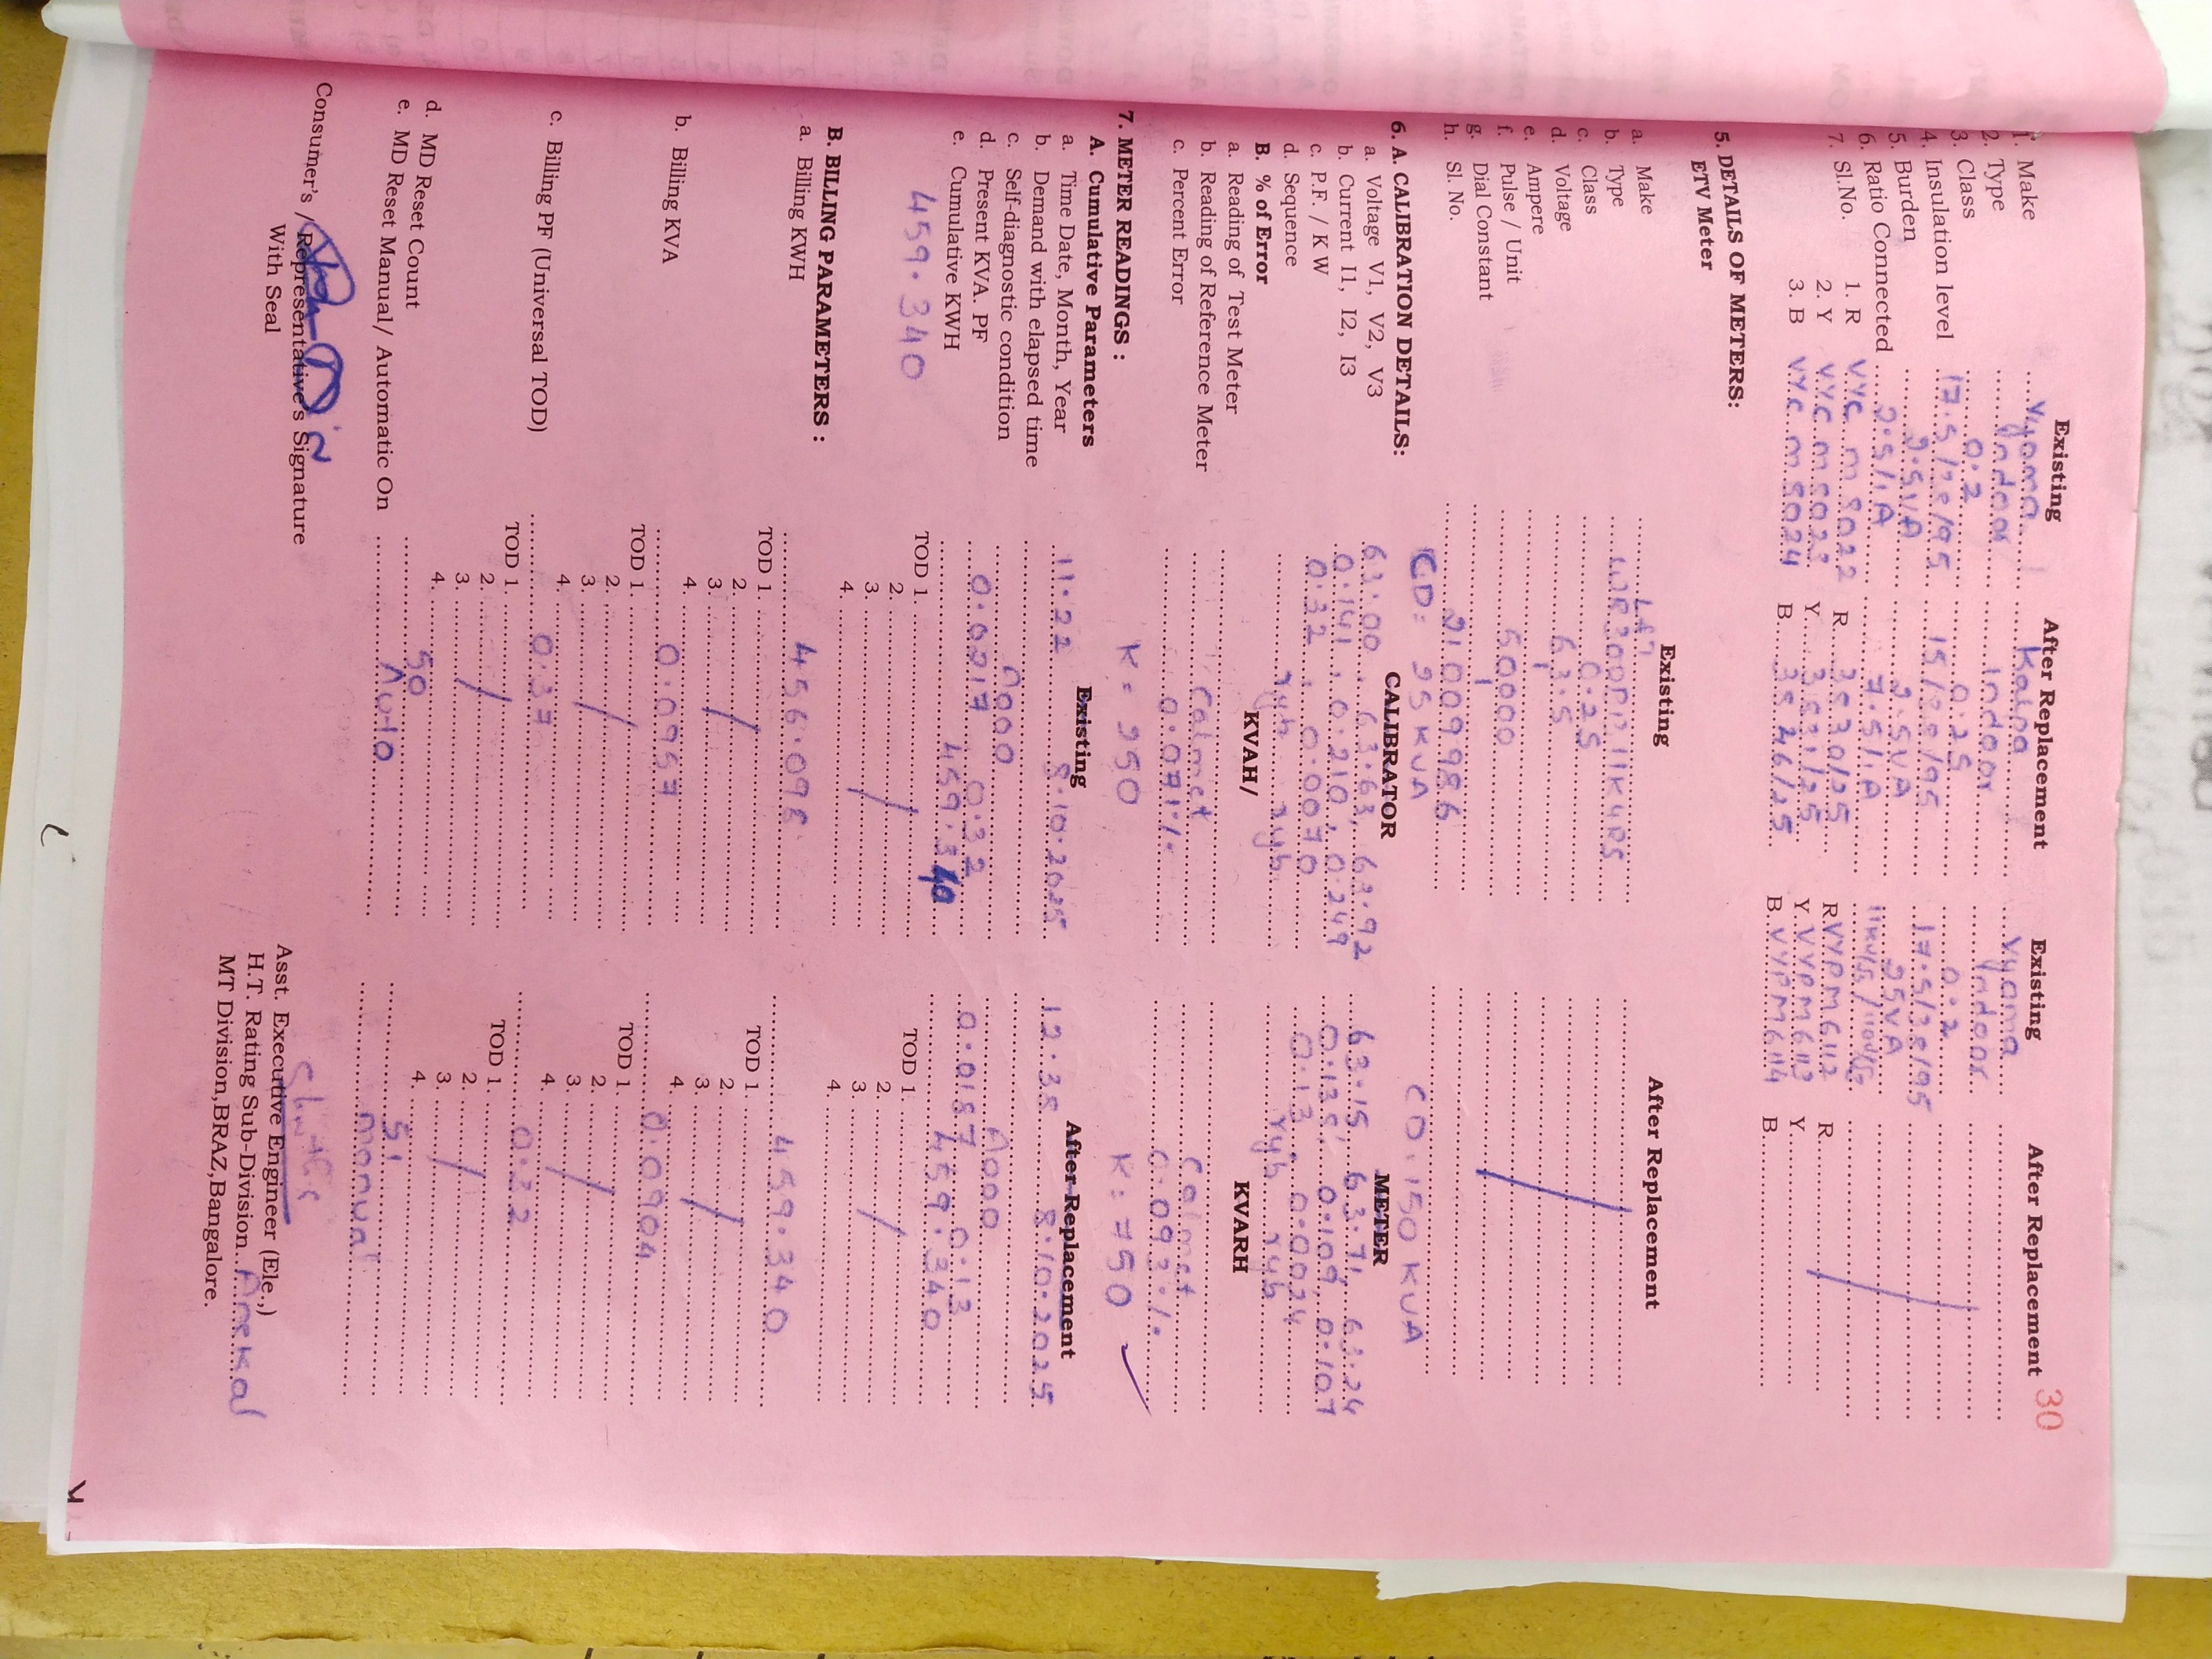 30
Existing After Replacement Existing After Replacement
1. Make Vyoma Kalpa Vyoma
2. Type Indoor Indoor Indoor
3. Class 0.2 0.2S 0.2
4. Insulation level 17.5/38/95 15/28/95 17.5/38/95
5. Burden 2.5VA 2.5VA 25VA
6. Ratio Connected 2.5/1A 7.5/1A
7. Sl.No. 1. R VYC M 8022 R 3530/25 R. VYPM6112
2. Y VYC M 8023 Y 3531/25 Y. VYPM6113 Y
3. B VYC M 8024 B 3526/25 B. VYPM6114 B
R
5. DETAILS OF METERS:
ETV Meter
Existing After Replacement
a. Make L&T
b. Type
c. Class 0.2S
d. Voltage 63.5
e. Ampere 1
f. Pulse / Unit 50000
g. Dial Constant 1
h. Sl. No. 21009986
CD: 95 KVA CD: 150 KVA
6. A. CALIBRATION DETAILS: CALIBRATOR METER
a. Voltage V1, V2, V3 63.00, 63.63, 63.92 63.15, 63.71, 63.24
b. Current I1, I2, I3 0.141, 0.210, 0.249 0.135, 0.109, 0.107
c. P.F. / K W 0.32, 0.0070 0.13 0.0024
d. Sequence ryb ryb ryb ryb
B. % of Error KVAH/ KVARH
a. Reading of Test Meter
b. Reading of Reference Meter Calmet Calmet
c. Percent Error 0.071% 0.093%
K = 250 K = 750
7. METER READINGS :
A. Cumulative Parameters Existing After Replacement
a. Time Date, Month, Year 11.22 8.10.2025 12.35 8.10.2025
b. Demand with elapsed time
c. Self-diagnostic condition A000 A000
d. Present KVA. PF 0.0217 0.32 0.0187 0.13
e. Cumulative KWH 459.340 459.340
459.340 TOD 1. TOD 1
2. 2
3 3
4. 4
B. BILLING PARAMETERS :
a. Billing KWH 456.098 459.340
TOD 1. TOD 1
2. 2
3. 3
4. 4
b. Billing KVA 0.0957 0.0904
TOD 1. TOD 1
2. 2.
3. 3.
4. 4.
c. Billing PF (Universal TOD) 0.37 0.22
TOD 1. TOD 1
2. 2.
3. 3
4. 4.
d. MD Reset Count 50 51
e. MD Reset Manual/ Automatic On Auto manual
Consumer's / Representative's Signature
With Seal
Asst. Executive Engineer (Ele.,)
H.T. Rating Sub-Division Anekal
MT Division,BRAZ,Bangalore.